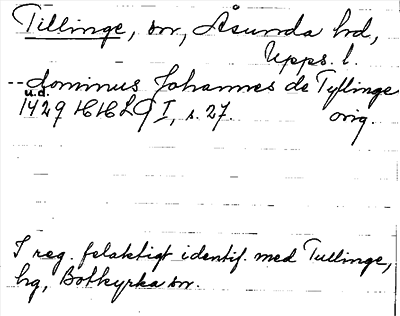 Tillinge, sn, Åsunda hd,
Upps. l.
-- dominus Johannes de Tyllinge
u.d.
1429 HHLG I, s. 27. orig.
I reg. felaktigt identif. med Tullinge,
hg, Botkyrka sn.